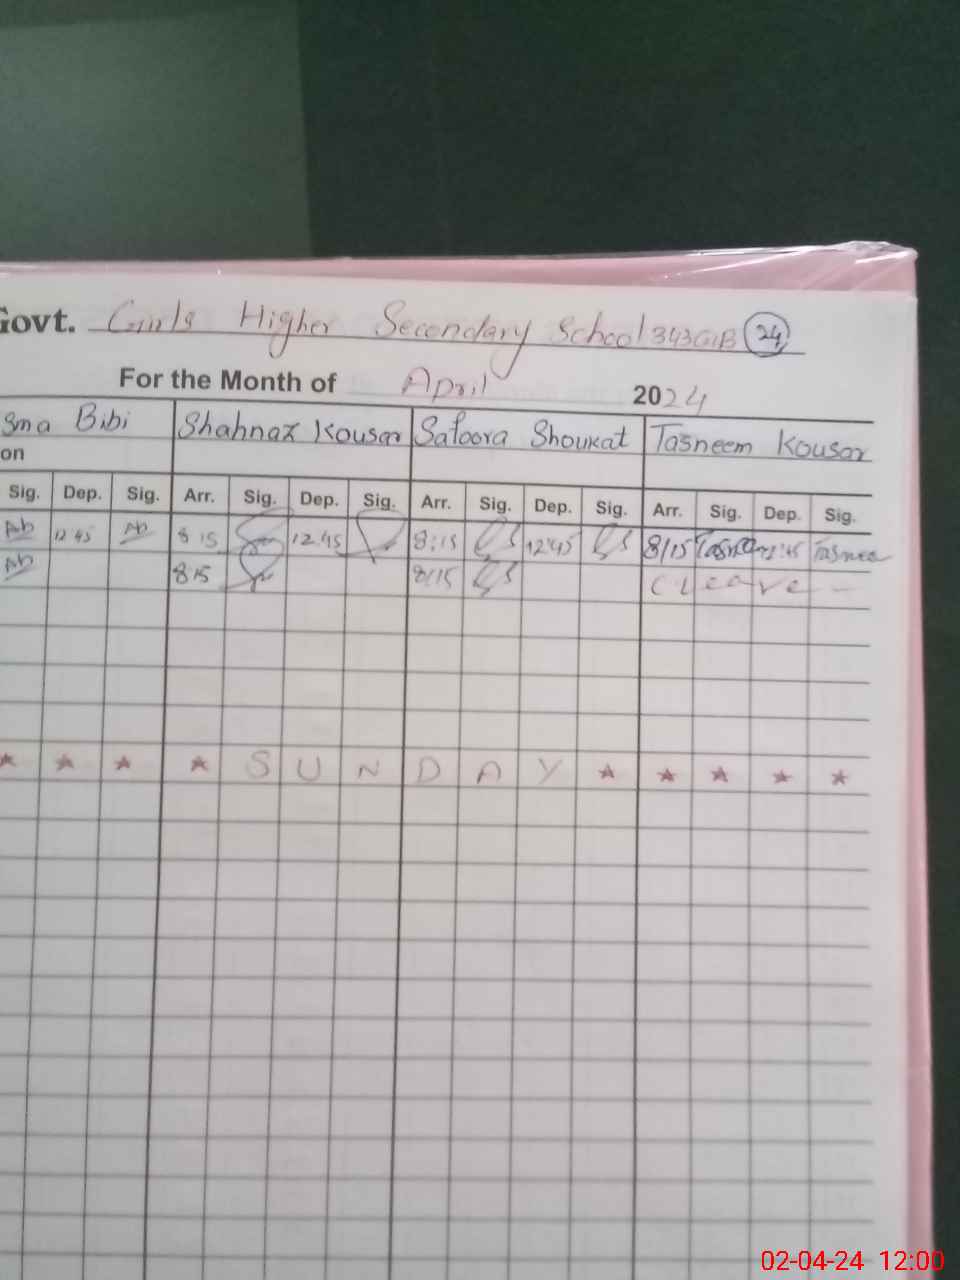 Govt. Girls Higher Secondary School 343GB 24
For the Month of April 2024
sma Bibi Shahnaz Kousar Safoora Shoukat Tasneem Kousar
on
Sig. Dep. Sig. Arr. Sig. Dep. Sig. Arr. Sig. Dep. Sig. Arr. Sig. Dep. Sig.
Ab 12 45 Ab 8 15 12:45 8:15 12:45 8/15
Ab 815 8/15 C Leave -
* * * * S U N D A Y * * * * *
02-04-24 12:00